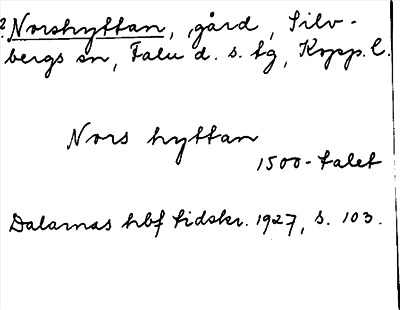 2. Norshyttan, gård, Silv-
bergs sn, Falu d. s. tg, Kopp. l.
Nors hyttan
1500-talet
Dalarnas hbf tidskr. 1927, s. 103.